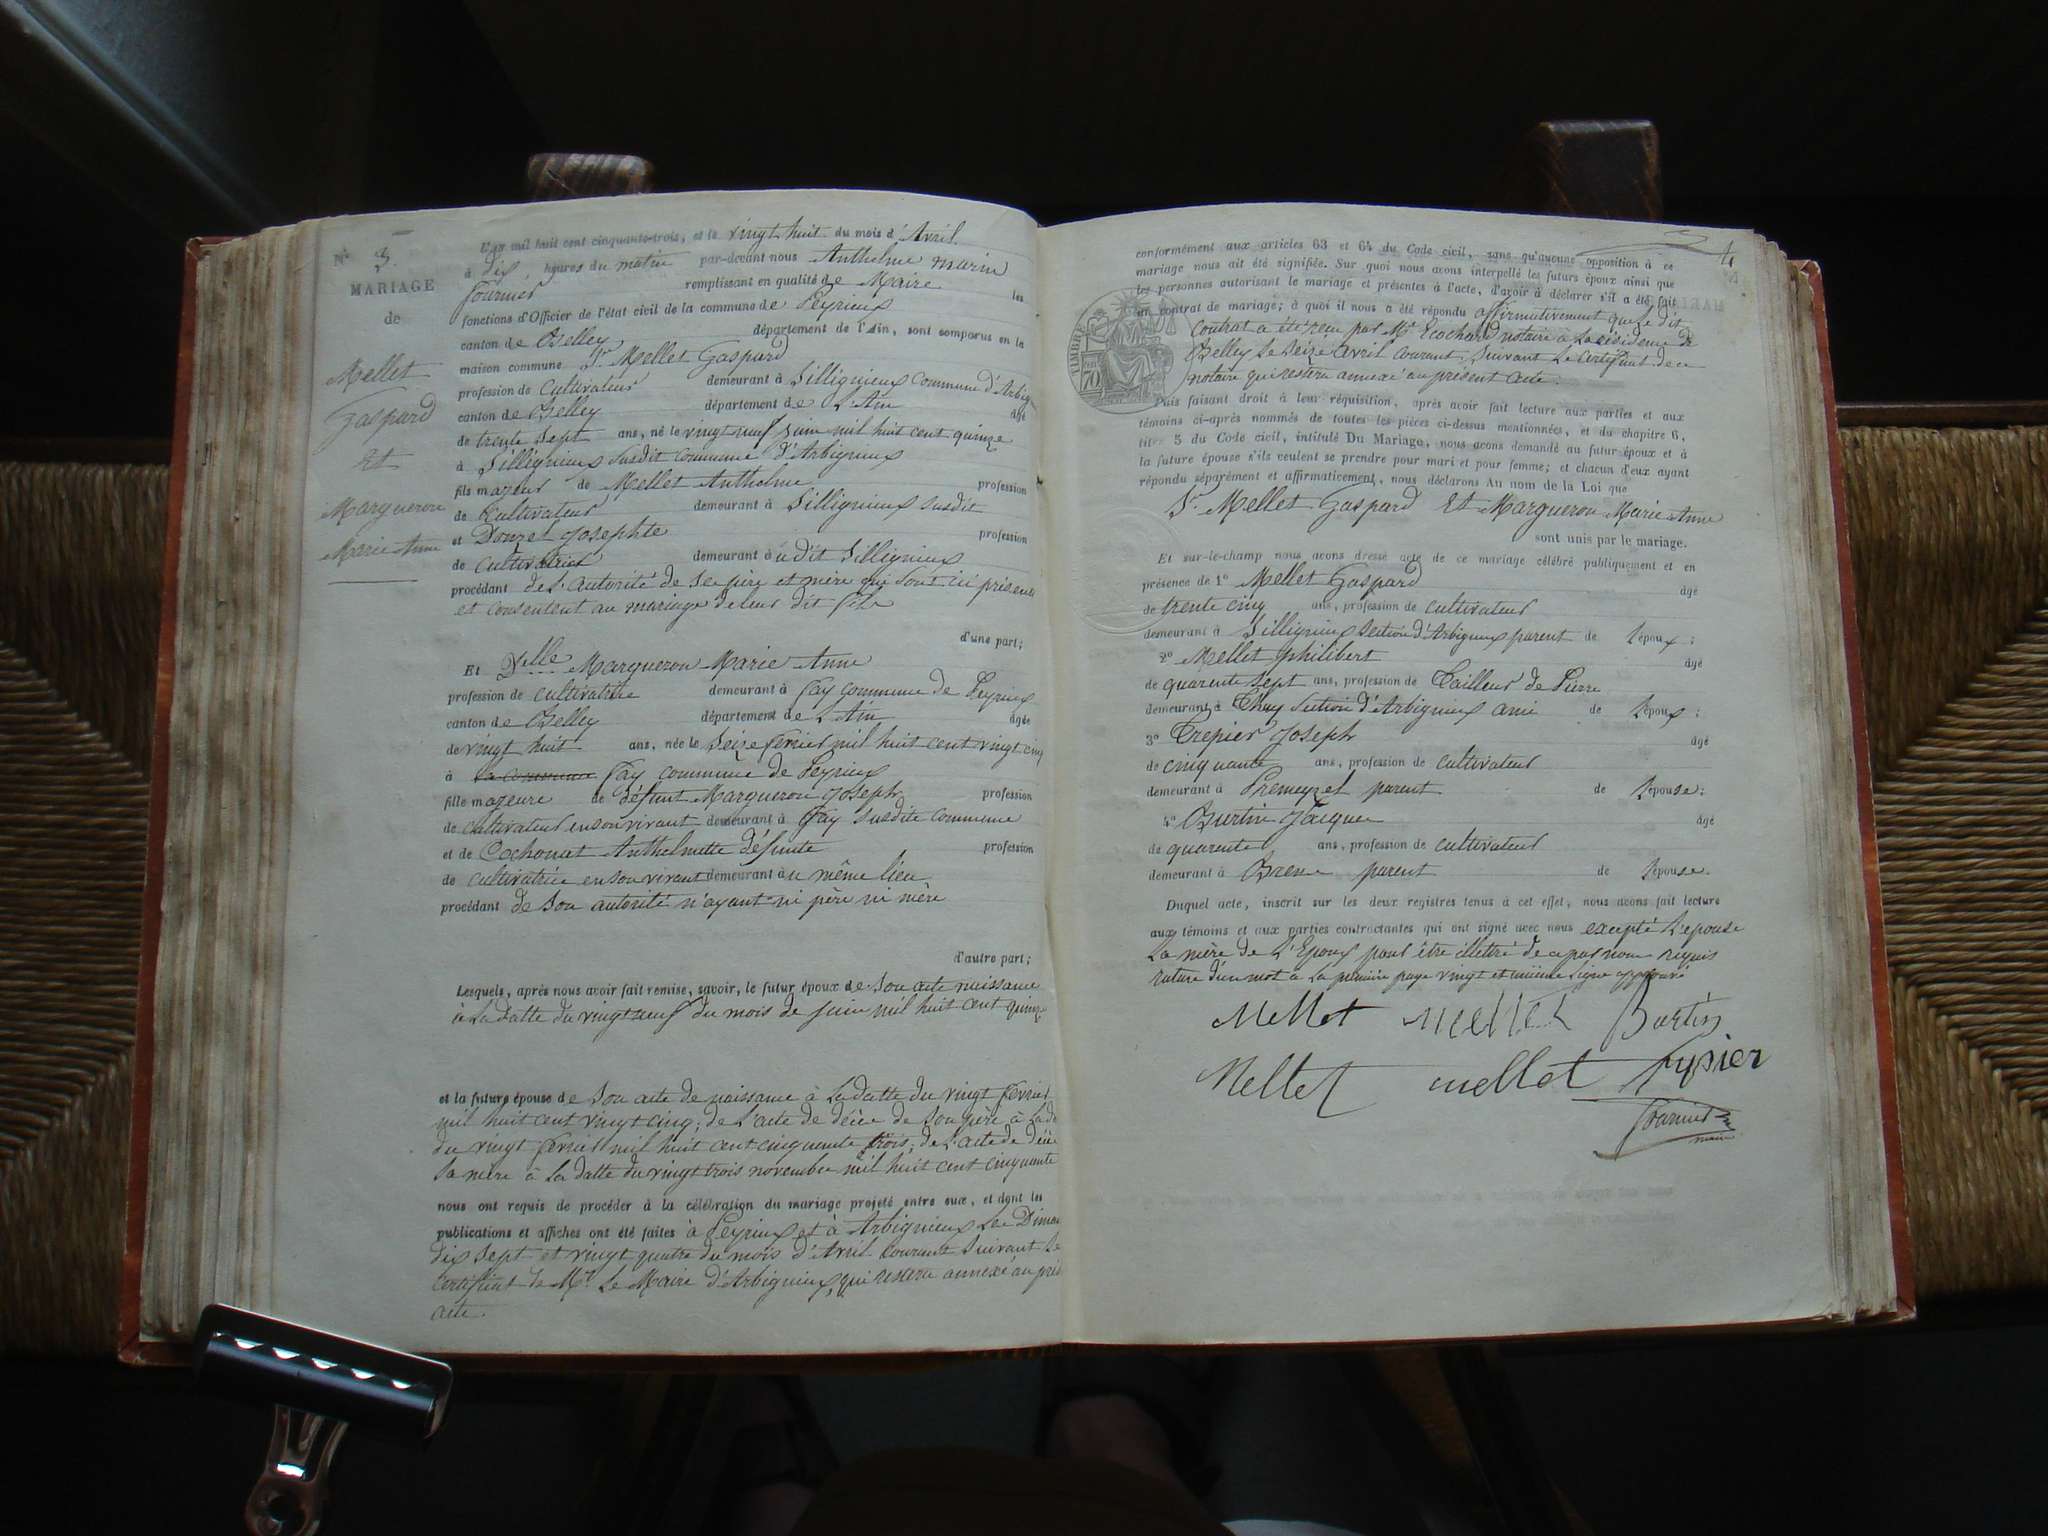 N° 3.
MARIAGE
de
Mellet
Gaspard
et
Margueron
Marie Anne
L'an mil huit cent cinquante-trois, et le vingt huit du mois d'Avril
à dix, heures du matin par-devant nous Anthelme marin
fournier remplissant en qualité de Maire les
fonctions d'Officier de l'état civil de la commune de Peyrieux
canton de Belley département de l'Ain, sont comparus en la
maison commune Sr Mellet Gaspard
profession de Cultivateur demeurant à Sillignieux commune d'Arbig
canton de Belley département de L'Ain âgé
de trente sept ans, né le vingt neuf juin mil huit cent quinze
à Sillignieux susdit commune d'Arbignieux
fils majeur de Mellet Anthelme profession
de Cultivateur demeurant à Sillignieux susdit
et Douzet Josephte profession
de Cultivatrice demeurant à u dit Sillignieux
procédant de L'autorité de ses père et mère qui sont ici présents
et consentent au mariage de leur dit fils
d'une part;
Et Delle Margueron Marie Anne
profession de cultivatrice demeurant à Fay commune de Peyrieux
canton de Belley département de L'Ain âgée
de vingt huit ans, née le Seize fevrier mil huit cent vingt cinq
à la commune Fay commune de Peyrieux
fille majeure de défunt Margueron Joseph profession
de cultivateur en son vivant demeurant à Fay susdite commune
et de Cochonat Anthelmette défunte profession
de cultivatrice en son vivant demeurant à u même lieu
procédant de son autorité n'ayant ni père ni mère
d'autre part;
Lesquels, après nous avoir fait remise, savoir, le futur époux de son acte naissance
à La datte du vingt neuf du mois de juin mil huit cent quinze
et la future épouse de son acte de naissance à La datte du vingt fevrier
mil huit cent vingt cinq; de L'acte de décès de son père à La da
du vingt fevrier mil huit cent cinquante trois; de L'acte de décès
sa mère à La datte du vingt trois novembre mil huit cent cinquante
nous ont requis de procéder à la célébration du mariage projeté entre eux, et dont les
publications et affiches ont été faites à Peyrieux et à Arbignieux Les Diman
dix sept et vingt quatre du mois d'Avril Courant suivant Le
Certificat de Mr Le Maire d'Arbignieux, qui restera annexé au prés
acte.
4
conformément aux articles 63 et 64 du Code civil, sans qu'aucune opposition à ce
mariage nous ait été signifiée. Sur quoi nous avons interpellé les futurs époux ainsi que
les personnes autorisant le mariage et présentes à l'acte, d'avoir à déclarer s'il a été fait
un contrat de mariage; à quoi il nous a été répondu affirmativement que le dit
Contrat a été reçu par Mr Ecochard notaire à La résidence de
Belley Le seize avril courant, suivant Le Certificat de ce
notaire qui restera annexé au présent acte.
TIMBRE
70
Puis faisant droit à leur réquisition, après avoir fait lecture aux parties et aux
témoins ci-après nommés de toutes les pièces ci-dessus mentionnées, et du chapitre 6,
titre 5 du Code civil, intitulé Du Mariage, nous avons demandé au futur époux et à
la future épouse s'ils veulent se prendre pour mari et pour femme; et chacun d'eux ayant
répondu séparément et affirmativement, nous déclarons Au nom de la Loi que
Sr Mellet Gaspard Et Margueron Marie Anne
sont unis par le mariage.
Et sur-le-champ nous avons dressé acte de ce mariage célébré publiquement et en
présence de 1° Mellet Gaspard âgé
de trente cinq ans, profession de cultivateur
demeurant à Sillignieux section d'Arbignieux parent de L'époux;
2° Mellet philibert âgé
de quarente sept ans, profession de Tailleur de Pierre
demeurant à Thuy section d'Arbignieux ami de L'époux;
3° Trepier Joseph âgé
de cinquante ans, profession de cultivateur
demeurant à Premeyzel parent de L'épouse;
4° Burtin Jacques âgé
de quarente ans, profession de cultivateur
demeurant à Brens parent de L'épouse.
Duquel acte, inscrit sur les deux registres tenus à cet effet, nous avons fait lecture
aux témoins et aux parties contractantes qui ont signé avec nous excepté L'epouse
La mère de L'Epoux pour être illettré de ce par nous requis
rature d'un mot à La première page vingt et unième Ligne approuvé
Mellet Mellet Burtin
Mellet mellet Trepier
Fournier
maire